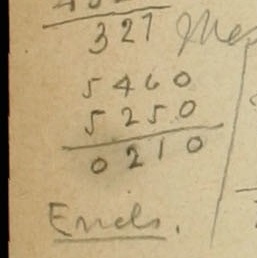 327
5460
5250
0210
Ends.